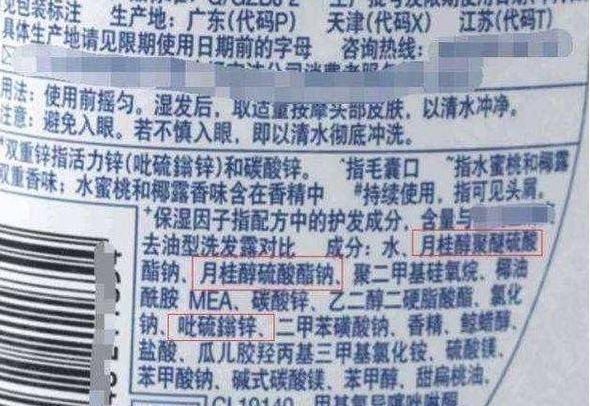 见包装标注 生产地：广东(代码P) 天津(代码X) 江苏(代码T)
具体生产地请见限期使用日期前的字母 咨询热线：
用法：使用前摇匀。湿发后，取适量按摩头部皮肤，以清水冲净。
注意：避免入眼。若不慎入眼，即以清水彻底冲洗。
双重锌指活力锌(吡硫鎓锌)和碳酸锌。 指毛囊口 ~指水蜜桃和椰露
双重香味；水蜜桃和椰露香味含在香精中 #持续使用，指可见头屑。
+保湿因子指配方中的护发成分，含量与
去油型洗发露对比 成分：水、月桂醇聚醚硫酸
酯钠、月桂醇硫酸酯钠、聚二甲基硅氧烷、椰油
酰胺 MEA、碳酸锌、乙二醇二硬脂酸酯、氯化
钠、吡硫鎓锌、二甲苯磺酸钠、香精、鲸蜡醇、
盐酸、瓜儿胶羟丙基三甲基氯化铵、硫酸镁、
苯甲酸钠、碱式碳酸镁、苯甲醇、甜扁桃油、
CI 19140、甲基氯异噻唑啉酮